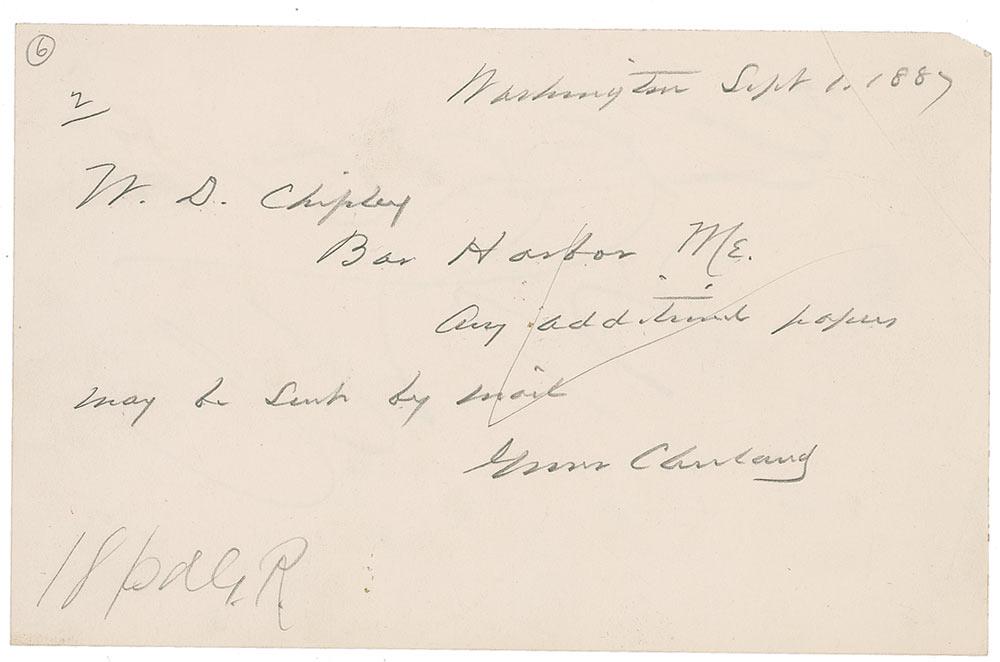 6
2
Washington Sept 1. 1887
W. D. Chipley
Bar Harbor Me.
Any additional papers
may be sent by mail
Grover Cleveland
18 pd G. R.